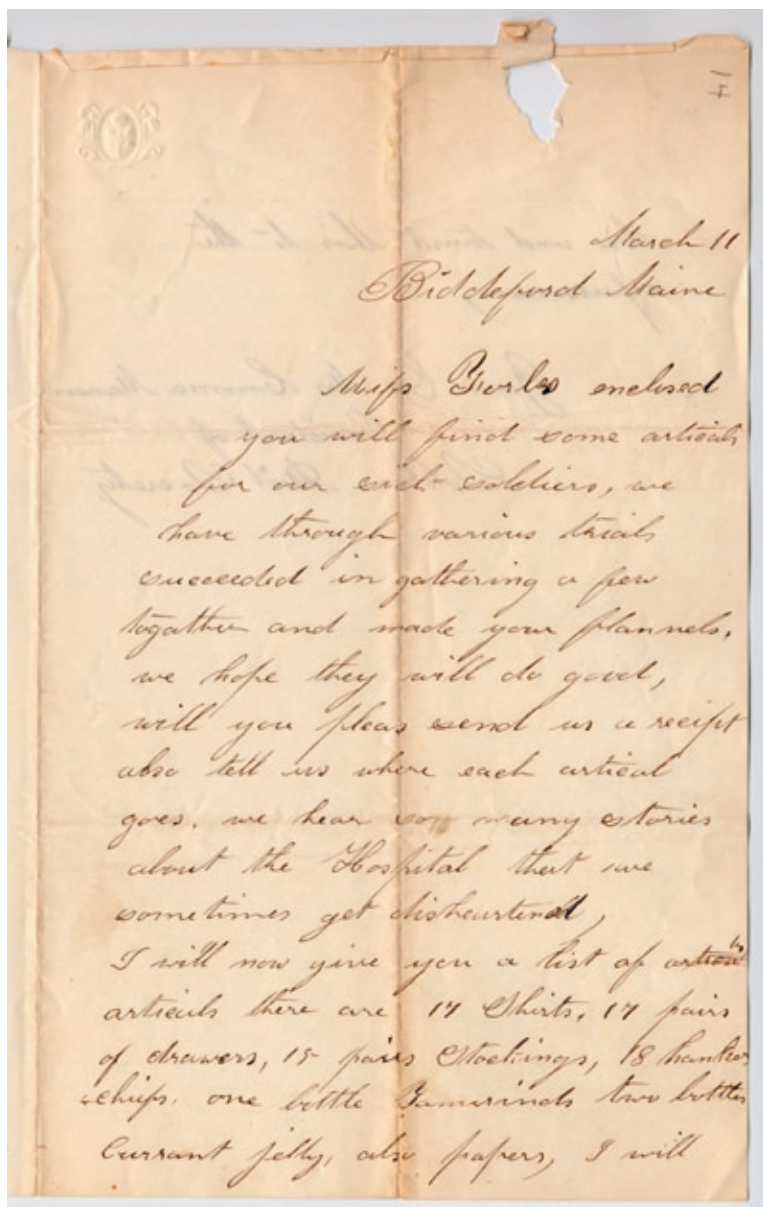 March 11
Biddeford Maine
Miss Forbes enclosed
you will find some articals
for our sick soldiers, we
have through various trials
succeeded in gathering a few
togather and made your flannels.
we hope they will do good,
will you pleas send us a reciept
also tell us where each artical
goes. we hear so many stories
about the Hospital that we
sometimes get dishartened,
I will now give you a list of
articals there are 17 Shirts, 17 pairs
of drawers, 15 pairs Stockings, 18 hanker
chiefs. one bottle Tamarinds two bottles
Currant jelly, also papers, I will